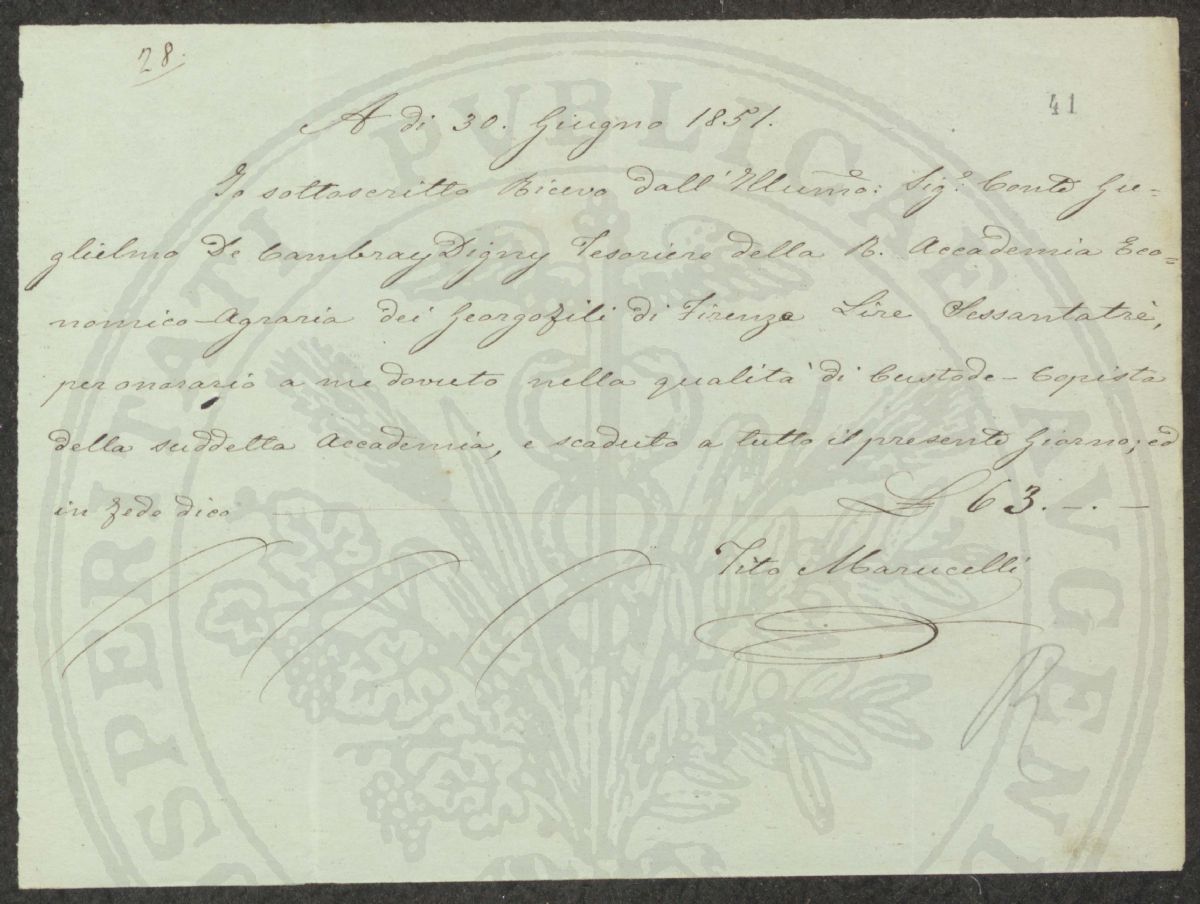 28.
41
A di 30. Giugno 1851.
Io sottoscritto Ricevo dall' Illum̃o: Sig.e Conte Gu=
glielmo De Cambray Digny Tesoriere della R. Accademia Eco=
nomico-Agraria dei Georgofili di Firenze Lire Sessantatrè,
per onorario a me dovuto nella qualità di Custode-Copista
della suddetta Accademia, e scaduto a tutto il presente Giorno; ed
in fede dico £ 63.-.-
Tito Marucelli
R
PROSPERITATI PUBLICAE AVGENDAE